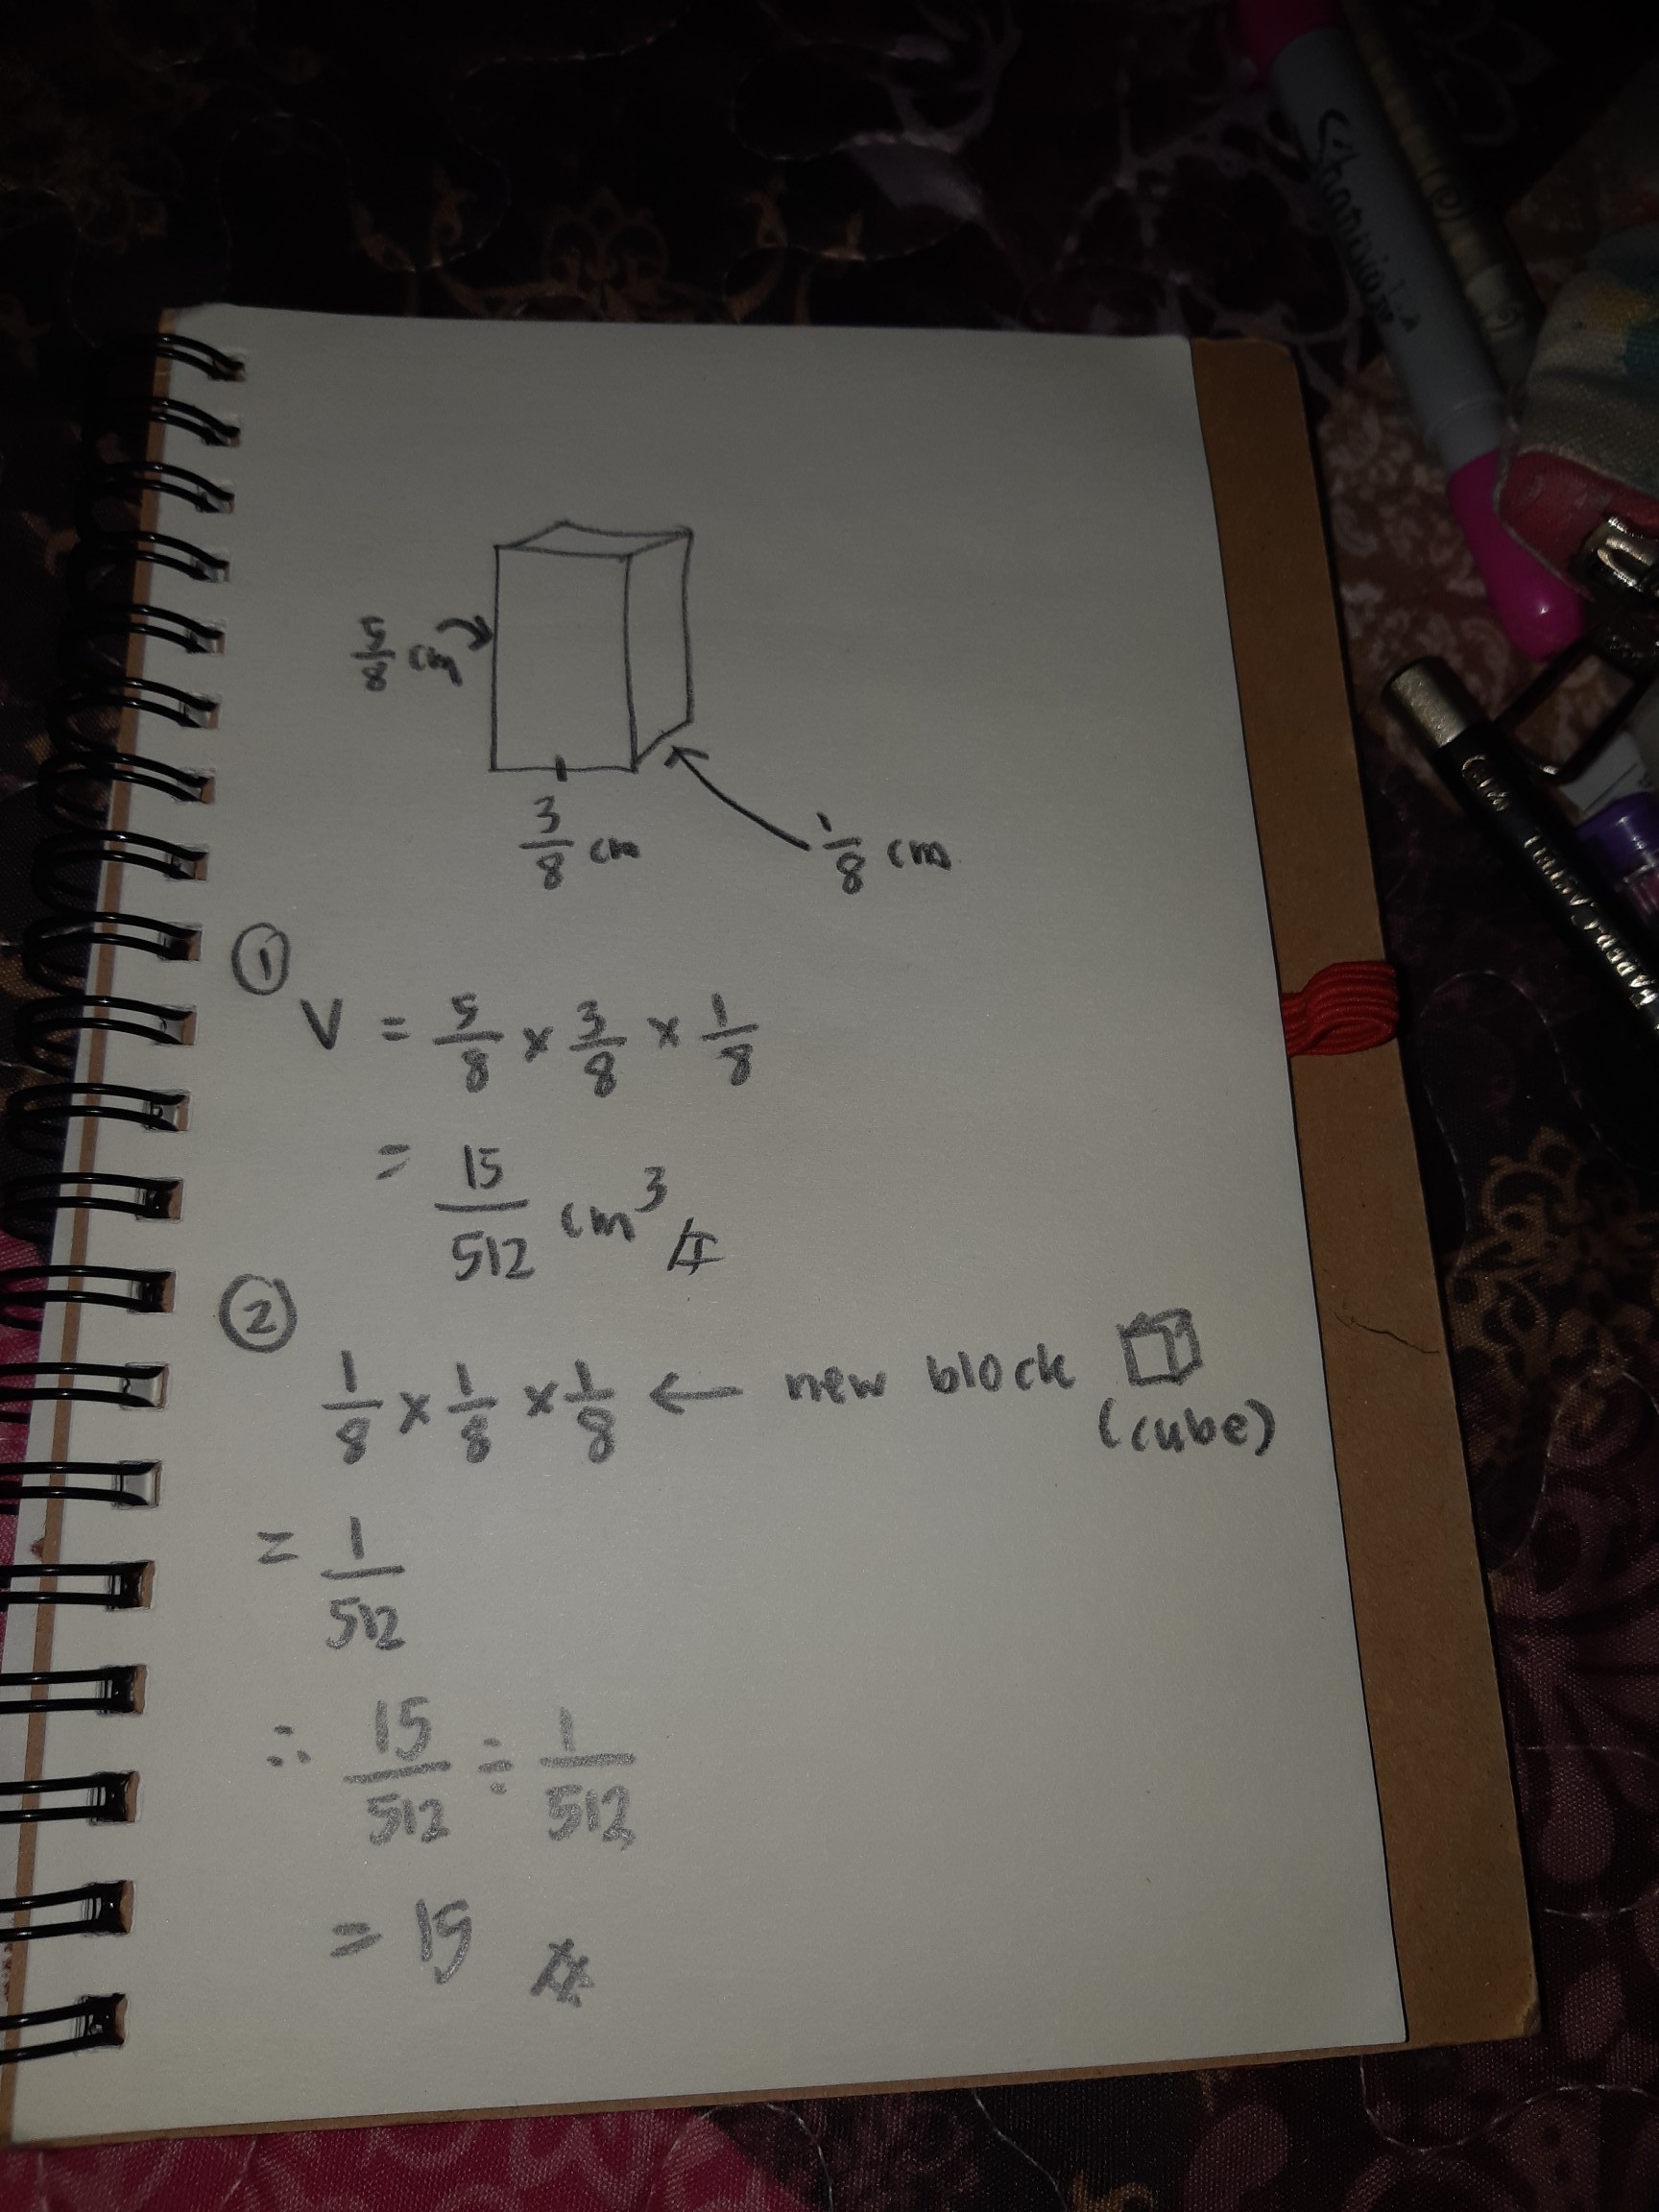 5/8 cm
3/8 cm
1/8 cm
①
V = 5/8 × 3/8 × 1/8
= 15/512 cm³
②
1/8 × 1/8 × 1/8 ← new block
(cube)
= 1/512
∴ 15/512 ÷ 1/512
= 15